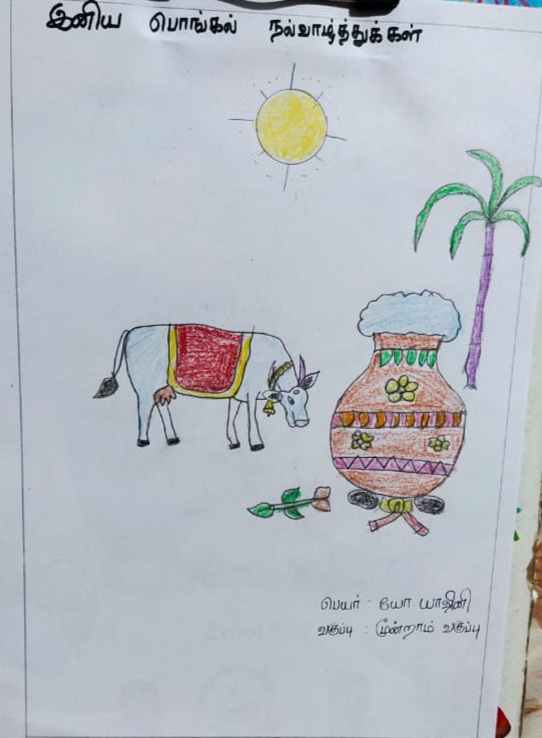 இனிய பொங்கல் நல்வாழ்த்துக்கள்
பெயர் : யோ யாஷினி
வகுப்பு : மூன்றாம் வகுப்பு